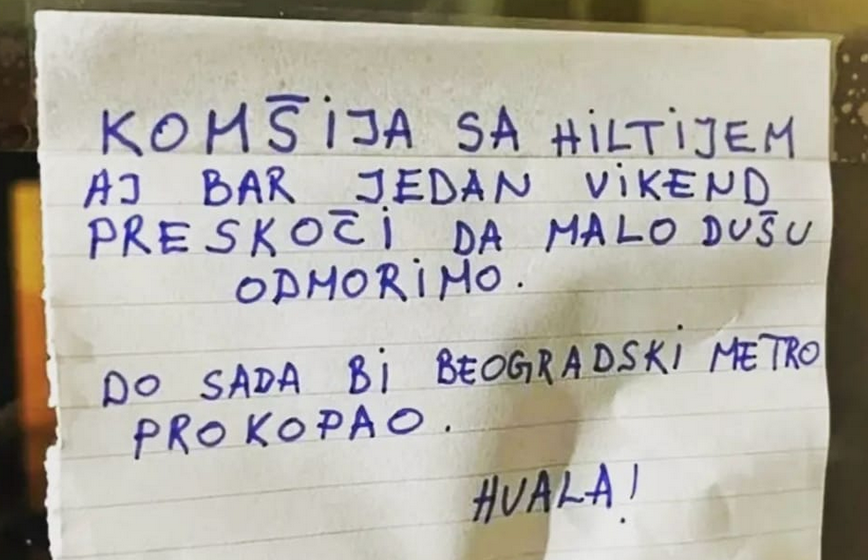 KOMŠIJA SA HILTIJEM
AJ BAR JEDAN VIKEND
PRESKOČI DA MALO DUŠU
ODMORIMO.
DO SADA BI BEOGRADSKI METRO
PROKOPAO.
HVALA!